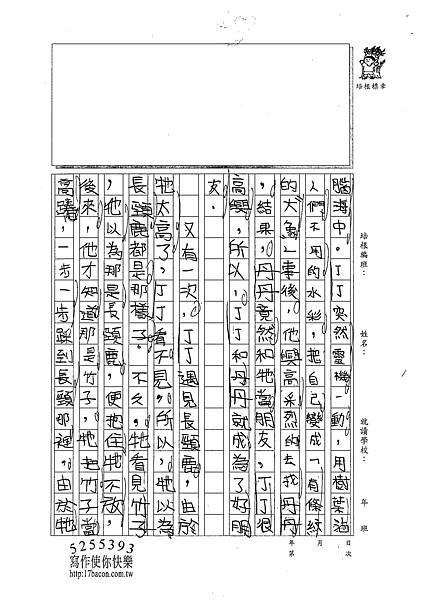 腦海中。丁丁突然靈機一動，用樹葉沾
人們不用的水彩，把自己變成「有條紋
的大象」事後，他興高采烈的去找丹丹
，結果，丹丹竟然和牠當朋友，丁丁很
高興，所以，丁丁和丹丹就成為了好朋
友。
又有一次，丁丁遇見長頸鹿，由於
牠太高了，丁丁看不見，所以，牠以為
長頸鹿都是那樣子。不久，牠看見竹子
，他以為那是長頸鹿，便抱住牠不放，
後來，他才知道那是竹子，牠把竹子當
高蹺，一步一步踩到長頸那裡，由於牠
培根標章
培根編班：
姓名：
就讀學校：
年 班
年 月 日
第 次
5255393
寫作使你快樂
http://17bacon.com.tw